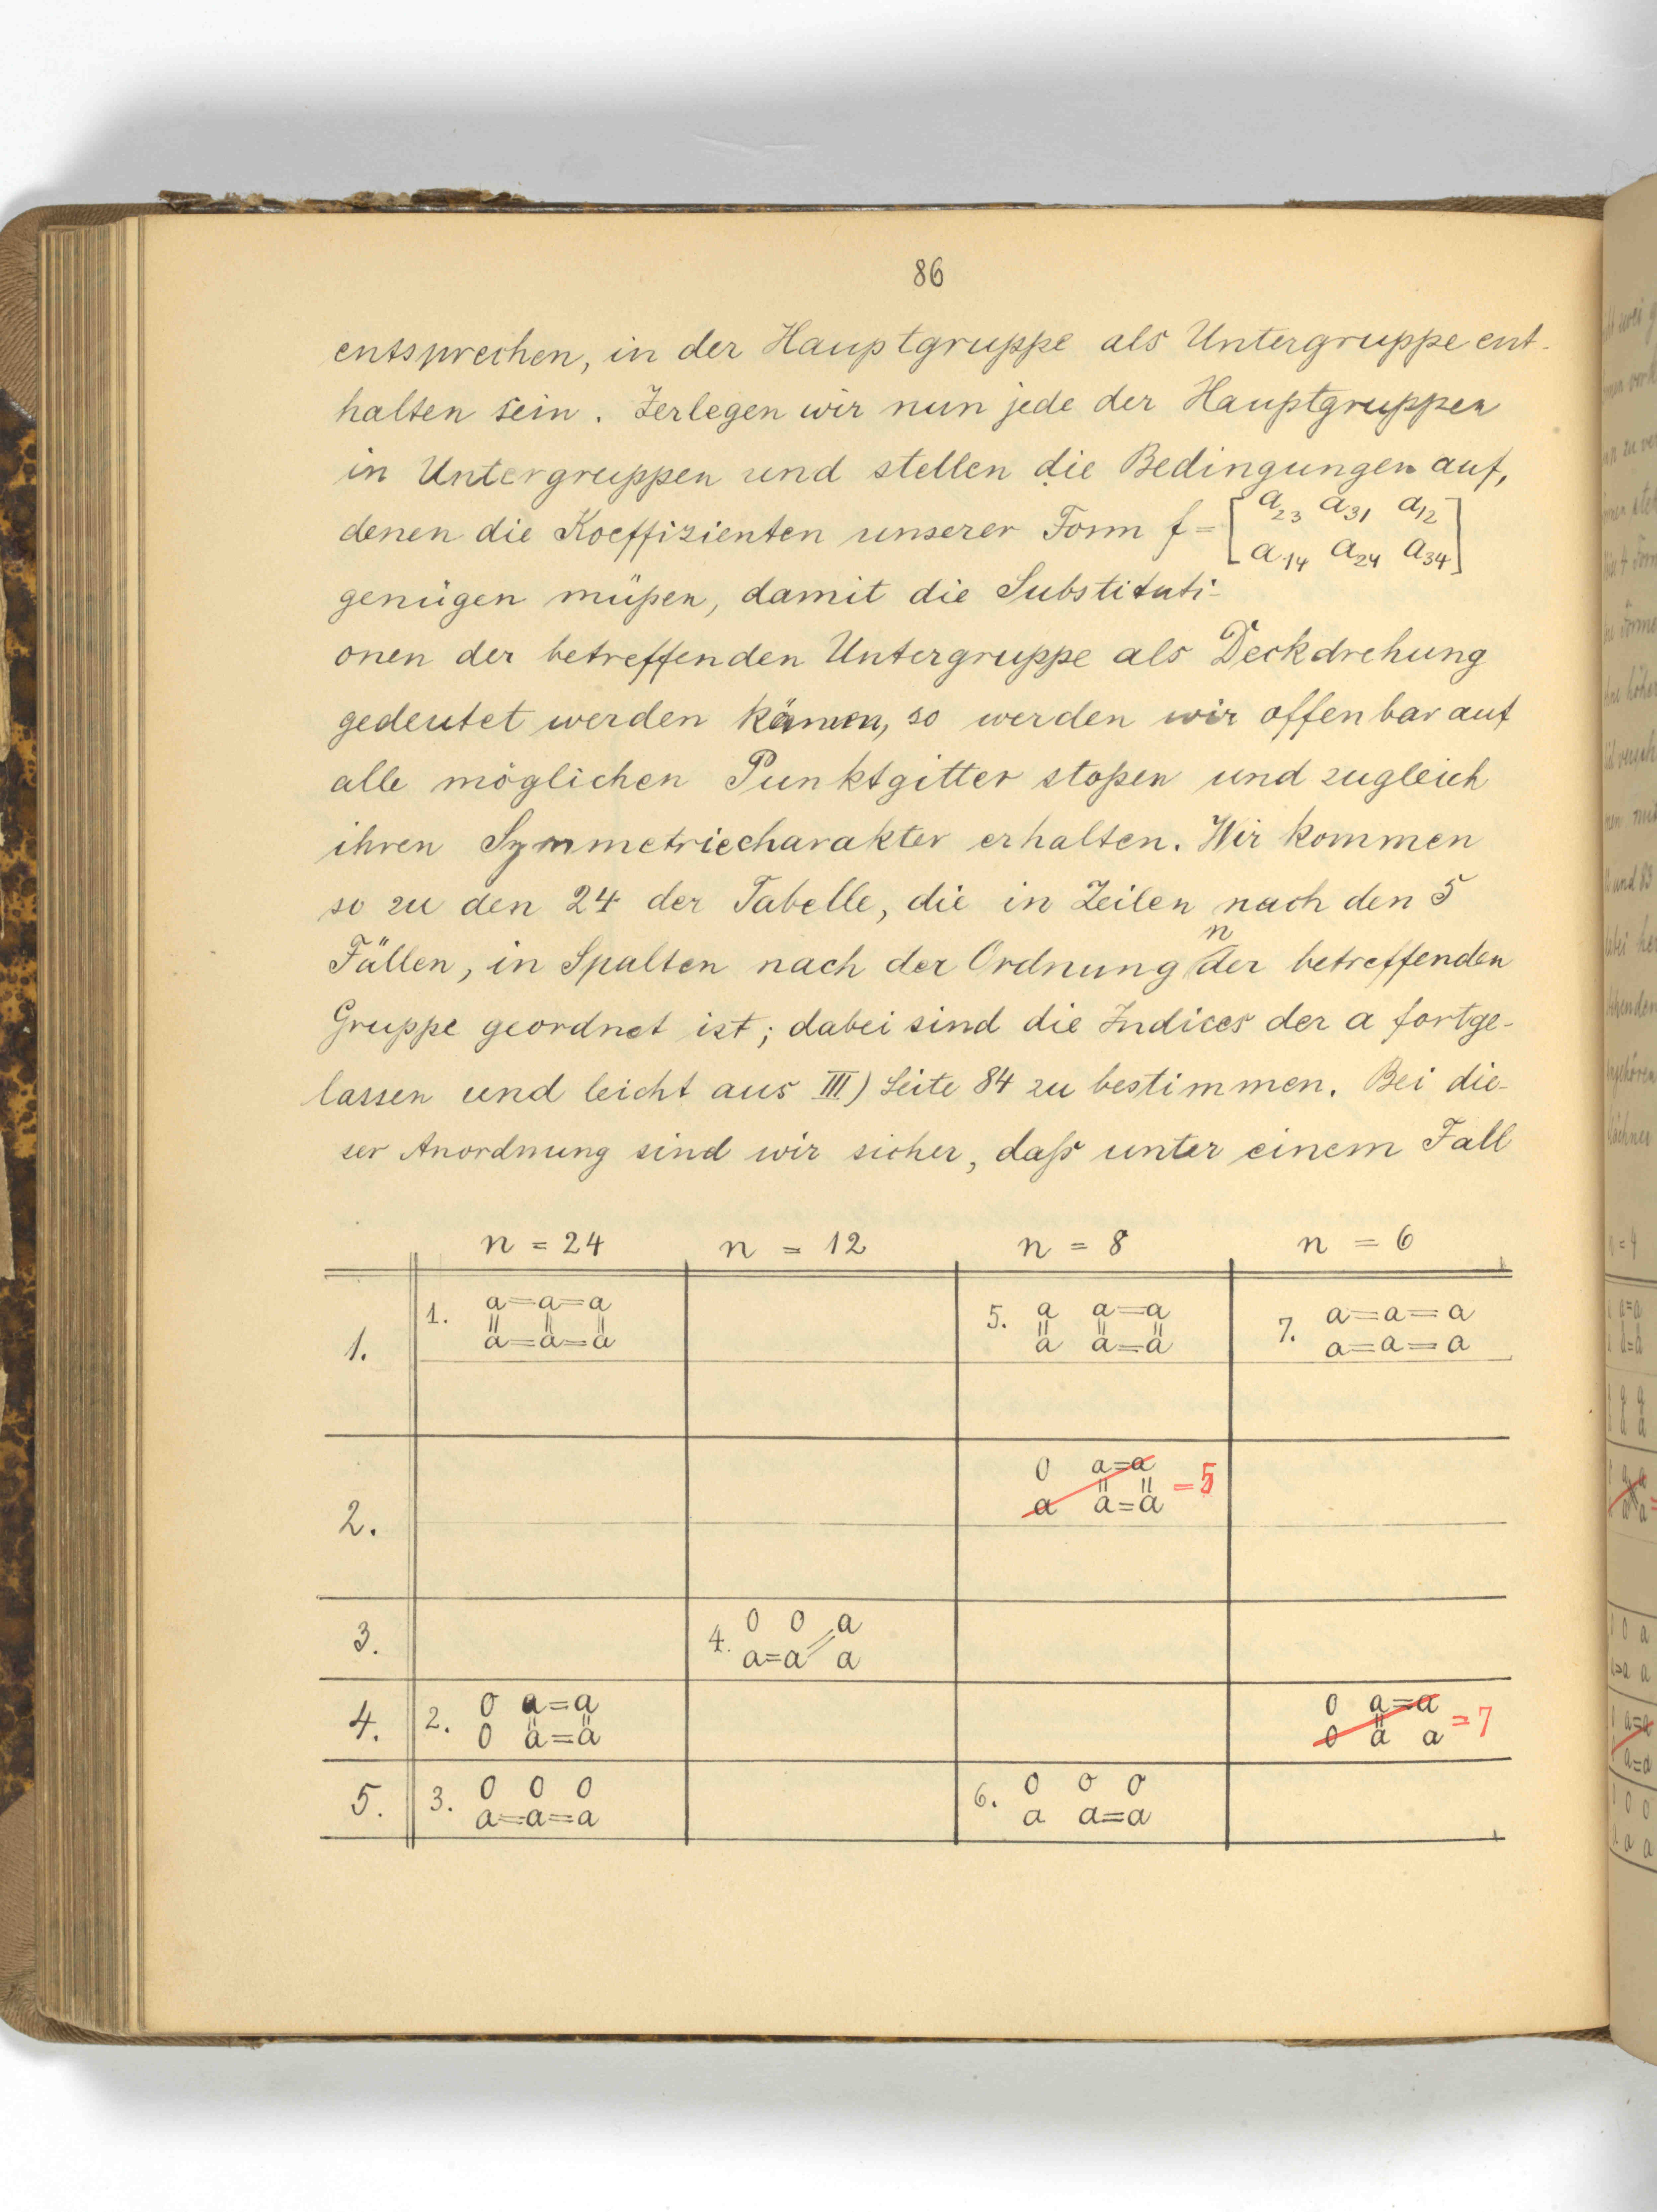 86
entsprechen, in der Hauptgruppe als Untergruppe ent-
halten sein. Zerlegen wir nun jede der Hauptgruppen
in Untergruppen und stellen die Bedingungen auf,
denen die Koeffizienten unserer Form f = [a₂₃ a₃₁ a₁₂
a₁₄ a₂₄ a₃₄]
genügen müßen, damit die Substituti-
onen der betreffenden Untergruppe als Deckdrehung
gedeutet werden können, so werden wir offenbar auf
alle möglichen Punktgitter stoßen und zugleich
ihren Symmetriecharakter erhalten. Wir kommen
so zu den 24 der Tabelle, die in Zeilen nach den 5
Fällen, in Spalten nach der Ordnung n der betreffenden
Gruppe geordnet ist; dabei sind die Indices der a fortge-
lassen und leicht aus III) Seite 84 zu bestimmen. Bei die-
ser Anordnung sind wir sicher, daß unter einem Fall
n = 24 n = 12 n = 8 n = 6
1. 1. a=a=a 5. a a=a 7. a=a=a
॥ ॥ ॥ ॥ ॥ ॥
a=a=a a a=a a=a=a
2. 0 a=a
॥ ॥
a a=a = 5
3. 4. 0 0 a
a=a=a a
4. 2. 0 a=a 0 a=a
॥ ॥ ॥
0 a=a 0 a a = 7
5. 3. 0 0 0 6. 0 0 0
a=a=a a a=a